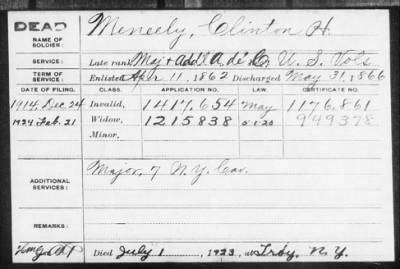 DEAD
NAME OF SOLDIER: Meneely, Clinton H.
SERVICE: Late rank, Maj & Addl A de C, U.S. Vols
TERM OF SERVICE: Enlisted Apr 11, 1862 Discharged May 31, 1866
DATE OF FILING. CLASS. APPLICATION NO. LAW. CERTIFICATE NO.
1914, Dec 24 Invalid, 1417,654 May 1176,861
1924 Feb. 21 Widow, 1215838 5-1-20 949378
Minor,
ADDITIONAL SERVICES: Major, 7 N.Y. Cav.
REMARKS:
Died July 1, 1923, at Troy, N.Y.